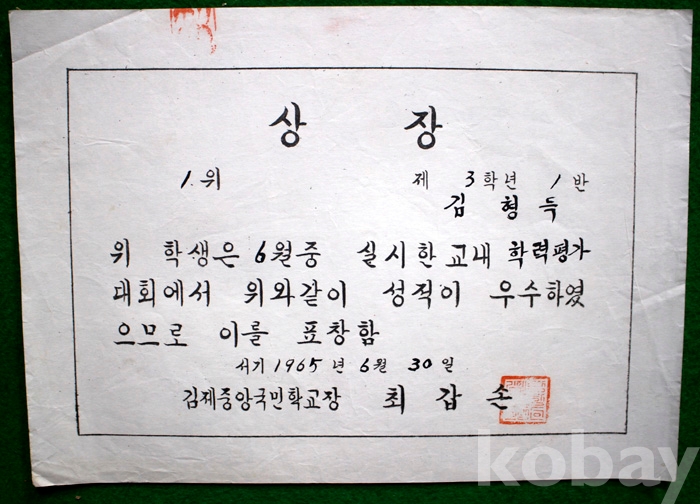 상 장
1. 위 제 3학년 1 반
김 형 득
위 학생은 6월중 실시한 교내 학력평가
대회에서 위와같이 성적이 우수하였
으므로 이를 표창함
서기 1965년 6월 30일
김제중앙국민학교장 최 갑 손
kobay